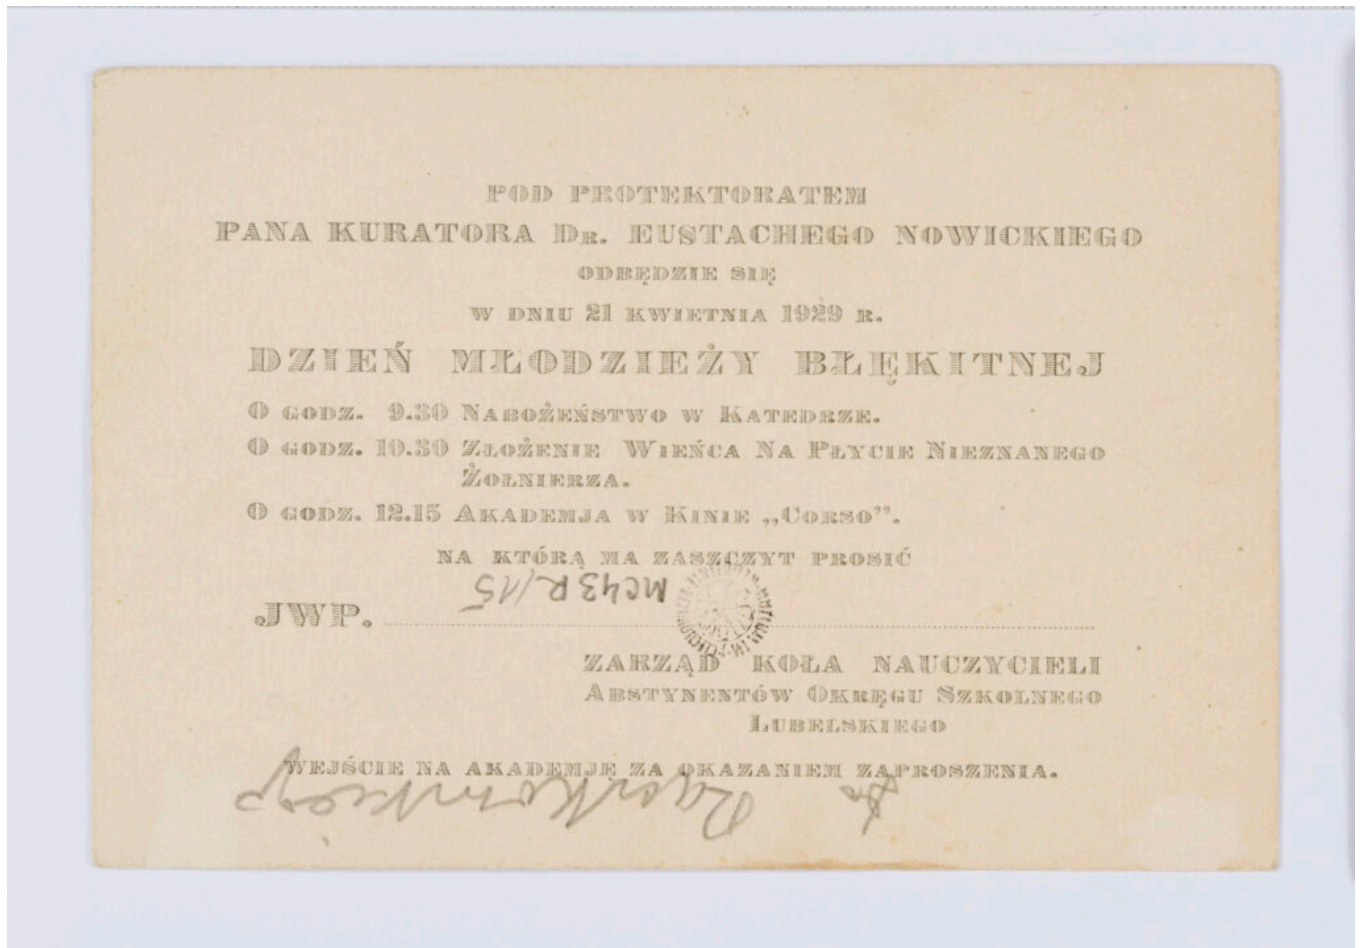 POD PROTEKTORATEM
PANA KURATORA DR. EUSTACHEGO NOWICKIEGO
ODBĘDZIE SIĘ
W DNIU 21 KWIETNIA 1929 R.
DZIEŃ MŁODZIEŻY BŁĘKITNEJ
O GODZ. 9.30 NABOŻEŃSTWO W KATEDRZE.
O GODZ. 10.30 ZŁOŻENIE WIEŃCA NA PŁYCIE NIEZNANEGO
ŻOŁNIERZA.
O GODZ. 12.15 AKADEMJA W KINIE „CORSO”.
NA KTÓRĄ MA ZASZCZYT PROSIĆ
MC43R/15
JWP.
ZARZĄD KOŁA NAUCZYCIELI
ABSTYNENTÓW OKRĘGU SZKOLNEGO
LUBELSKIEGO
WEJŚCIE NA AKADEMJĘ ZA OKAZANIEM ZAPROSZENIA.
Dr